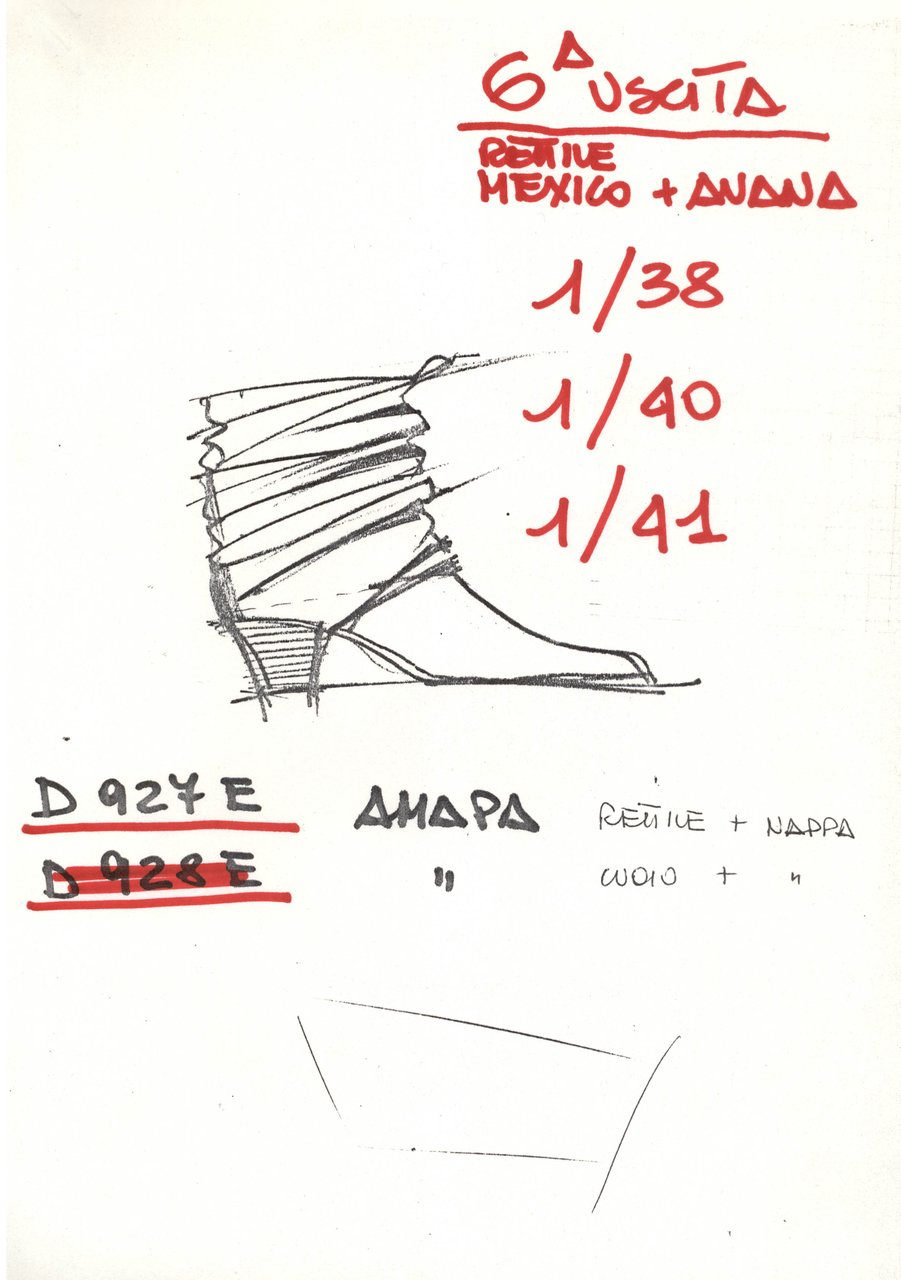 6ᴬ USCITA
RETTILE
MEXICO + ANANA
1/38
1/40
1/41
D 927 E AMAPA RETTILE + NAPPA
D 928 E " CUOIO + "